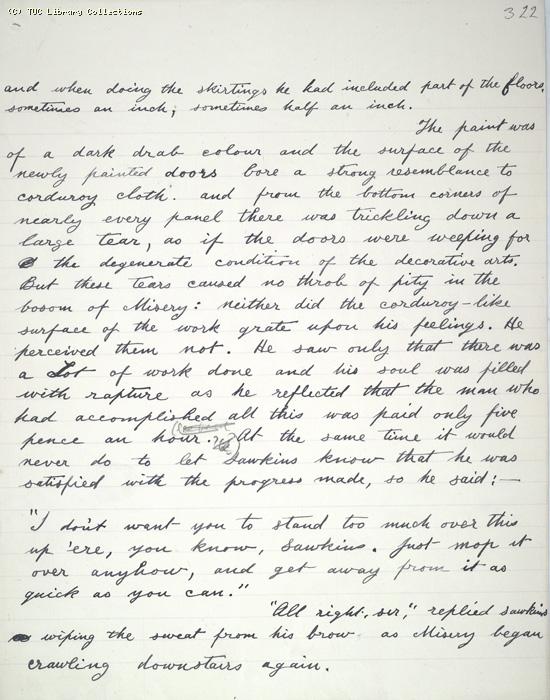 (C) TUC Library Collections
322
and when doing the skirtings he had included part of the floors,
sometimes an inch, sometimes half an inch.
The paint was
of a dark drab colour and the surface of the
newly painted doors bore a strong resemblance to
corduroy cloth. and from the bottom corners of
nearly every panel there was trickling down a
large tear, as if the doors were weeping for
the degenerate condition of the decorative arts.
But these tears caused no throb of pity in the
bosom of Misery: neither did the corduroy-like
surface of the work grate upon his feelings. He
perceived them not. He saw only that there was
a Lot of work done and his soul was filled
with rapture as he reflected that the man who
had accomplished all this was paid only five
pence an hour. At the same time it would
never do to let Sawkins know that he was
satisfied with the progress made, so he said:—
"I don't want you to stand too much over this
up 'ere, you know, Sawkins. Just mop it
over anyhow, and get away from it as
quick as you can."
"All right, sir", replied Sawkins
wiping the sweat from his brow as Misery began
crawling downstairs again.